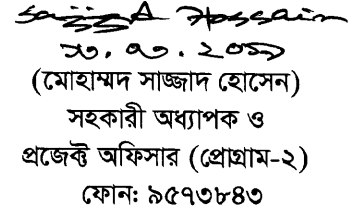 Sajjad Hossain
(মোহাম্মদ সাজ্জাদ হোসেন)
সহকারী অধ্যাপক ও
প্রজেক্ট অফিসার (প্রোগ্রাম-২)
ফোন: ৯৫৭৩৮৪৩